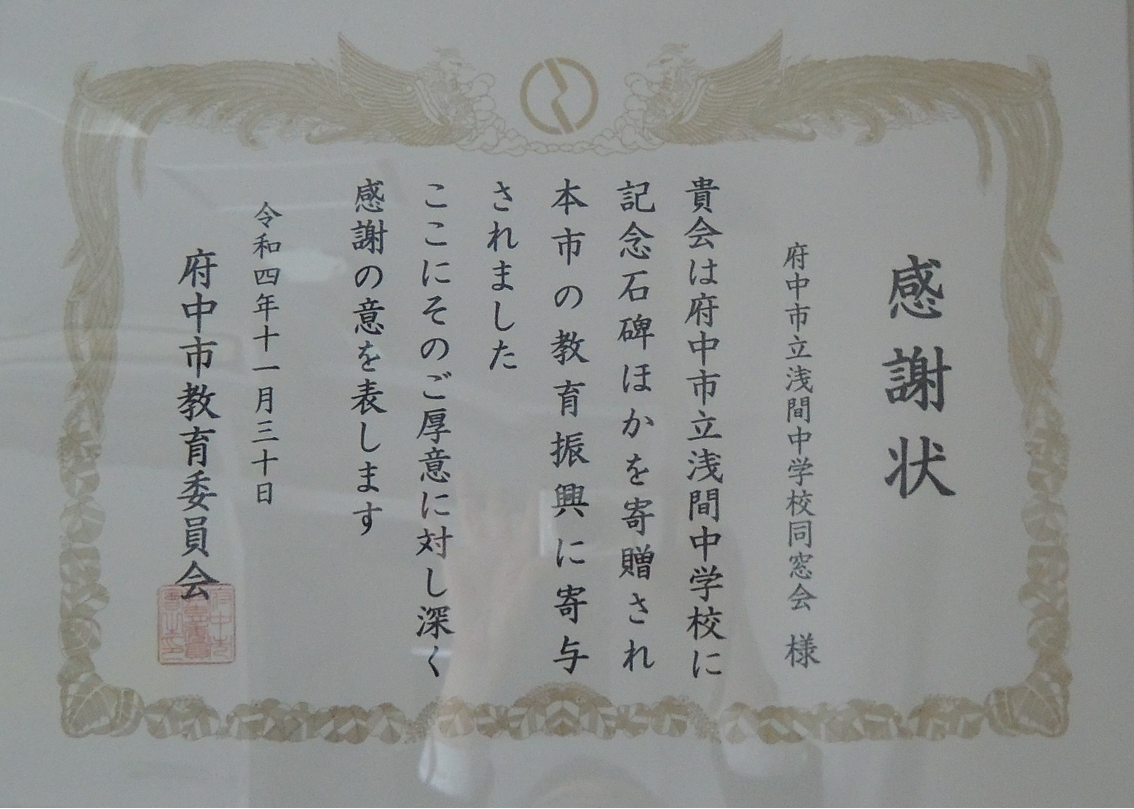 感謝状
府中市立浅間中学校同窓会 様
貴会は府中市立浅間中学校に
記念石碑ほかを寄贈され
本市の教育振興に寄与
されました
ここにそのご厚意に対し深く
感謝の意を表します
令和四年十一月三十日
府中市教育委員会